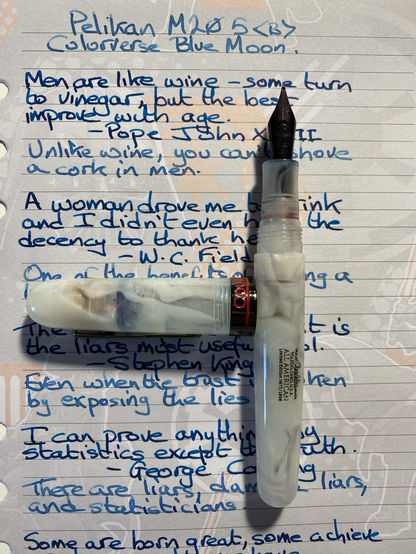 Pelikan M205 <B>
Colorverse Blue Moon.
Men are like wine – some turn
to vinegar, but the best
improve with age.
– Pope John X III
Unlike wine, you can't shove
a cork in men.
A woman drove me to drink
and I didn't even the
decency to thank
– W.C. Field
One of the benefits a
The is
the liars most useful
– Stephen King
Even when the trust is
by exposing the lies
I can prove anything by
statistics except truth.
– George
There are liars, liars,
and statisticians
Some are born great, some achieve
ALL AMERICAN